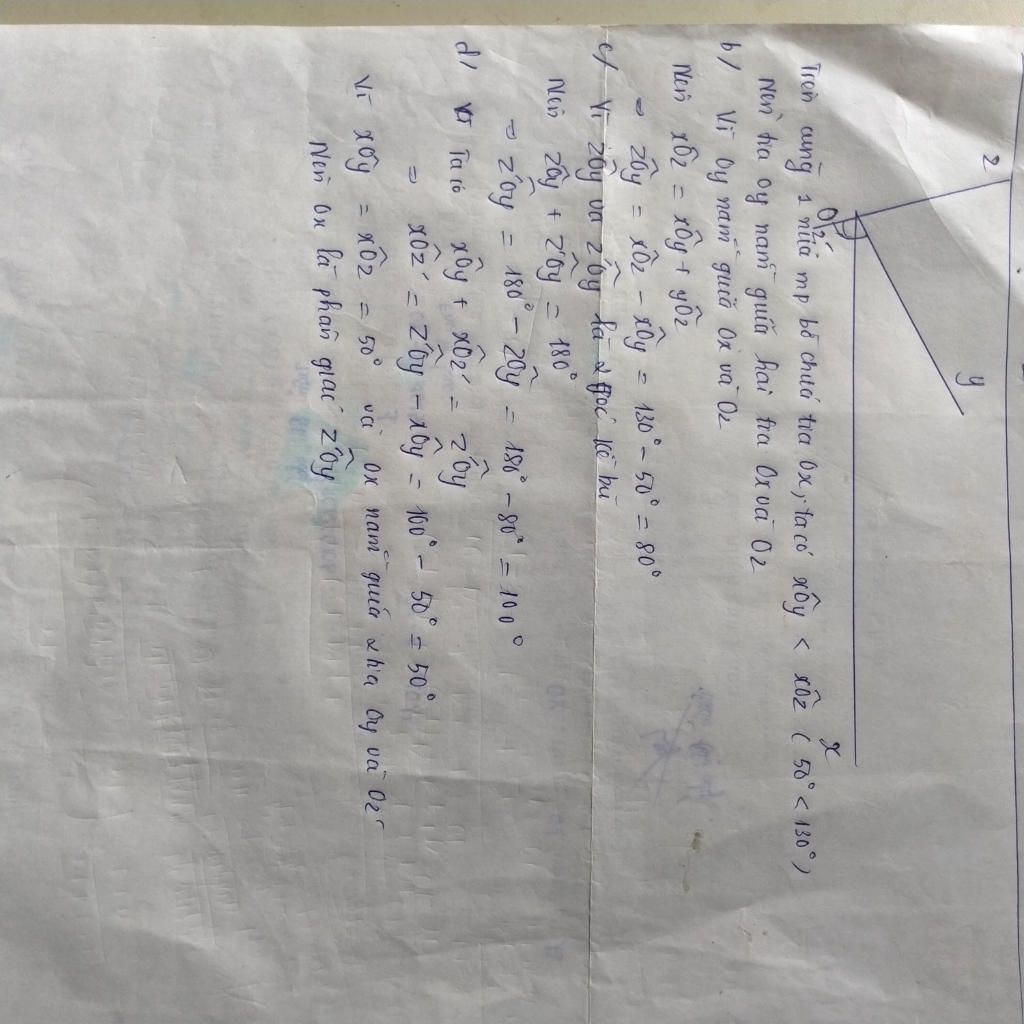 z
y
O
x
Trên cùng 1 nửa mp bờ chứa tia Ox, ta có xÔy < xÔz ( 50° < 130° )
Nên tia Oy nằm giữa hai tia Ox và Oz
b/ Vì Oy nằm giữa Ox và Oz
Nên xÔz = xÔy + yÔz
⇒ zÔy = xÔz - xÔy = 130° - 50° = 80°
c/ Vì zÔy và z'Ôy là 2 góc kề bù
Nên zÔy + z'Ôy = 180°
⇒ z'Ôy = 180° - zÔy = 180° - 80° = 100°
d/ Ta có xÔy + xÔz' = z'Ôy
⇒ xÔz' = z'Ôy - xÔy = 100° - 50° = 50°
Vì xÔy = xÔz = 50° và Ox nằm giữa 2 tia Oy và Oz'
Nên Ox là phân giác z'Ôy